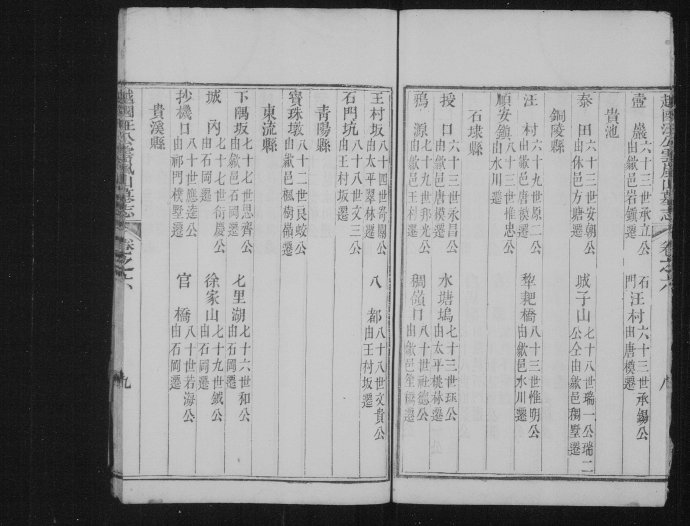 壺巖 六十三世承立公由歙邑岩鎮遷 石門汪村 六十三世承錫公由唐模遷
貴池
泰田 六十三世安朝公由休邑方塘遷 城子山 七十八世瑞一公瑞二公仝由歙邑稠墅遷
銅陵縣
汪村 六十九世原二公由歙邑唐模遷 犂耙橋 八十三世惟明公由歙邑水川遷
順安鎮 八十三世惟忠公由水川遷
石埭縣
授口 六十三世永昌公由歙邑唐模遷 水塘塢 七十三世公由太平桃林遷
鴉源 七十九世邦光公由歙邑王村遷 稠嶺口 八十世社德公由歙邑遷
越國汪公雲嵐山墓志 卷之六 八
王村坂 八十四世寄關公由太平翠林遷 八都 八十八世文貴公由王村坂遷
石門坑 八十八世文三公由王村坂遷
青陽縣
寶珠墩 八十二世良蛟公由歙邑楓樹嶺遷
東流縣
下隅坂 七十七世思齊公由歙邑石岡遷 七里湖 七十六世和公由石岡遷
城內 七十七世衍慶公由石岡遷 徐家山 七十九世鉞公由石岡遷
抄機口 八十世應達公由祁門樸墅遷 官橋 八十世若海公由石岡遷
貴溪縣
越國汪公雲嵐山墓志 卷之六 九